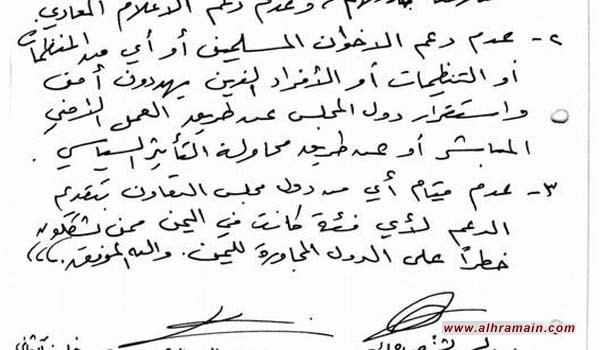 وعدم دعم الاعلام المعادي.
٢- عدم دعم الاخوان المسلمين أو أي من المنظمات
أو التنظيمات أو الأفراد الذين يهددون أمن
واستقرار دول المجلس عن طريق العمل الأمني
المباشر أو عن طريق محاولة التأثير السياسي.
٣- عدم قيام أي من دول مجلس التعاون بتقديم
الدعم لأي فئة كانت في اليمن ممن يشكلون
خطراً على الدول المجاورة لليمن. والله الموفق،،،
www.alhramain.com